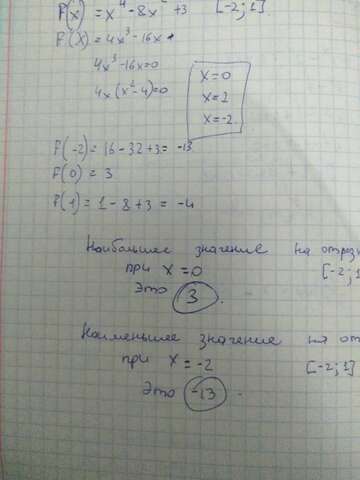 f(x) = x⁴ - 8x² + 3 [-2; 1].
f'(x) = 4x³ - 16x
4x³ - 16x = 0
4x(x² - 4) = 0
x = 0
x = 2
x = -2.
f(-2) = 16 - 32 + 3 = -13
f(0) = 3
f(1) = 1 - 8 + 3 = -4
Наибольшее значение на отрезк
при x = 0 [-2; 1
Это 3.
Наименьшее значение на от
при x = -2 [-2; 1]
Это -13.